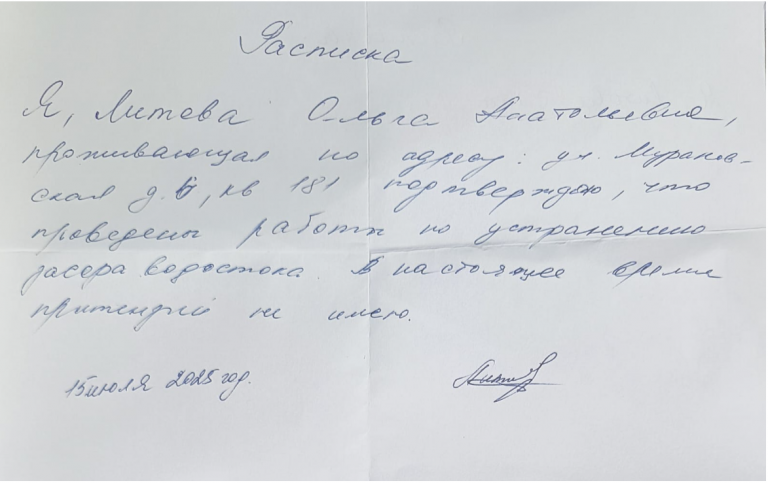 Расписка
Я, Литова Ольга Анатольевна,
проживающая по адресу: ул. Муранов-
ская д. 6, кв 181 подтверждаю, что
проведены работы по устранению
засора водостока. В настоящее время
притензий не имею.
15 июля 2025 год.